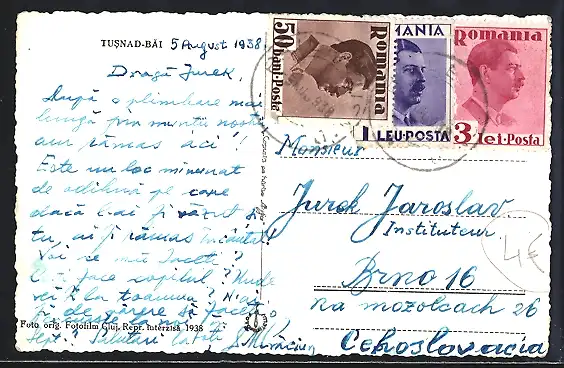 TUȘNAD-BĂI 5 August 1938.
Dragă Jurek,
După o plimbare mai
lungă prin munții noștri
am rămas aci!!
Este un loc minunat
de odihnă pe care
dacă l-ai fi văzut și
tu, ai fi rămas încântat.
Voi ce mai faceți?
Ce face copilul? Unde
la toamna?
Foto orig. Fotofilm Cluj, Repr. interzisă 1938
Sept? Salutări la toți
50
bani-Posta
Romania
ROMANIA
1 LEU-POSTA
Romania
3 lei-Posta
Monsieur
Jurek Jaroslav
Instituteur
Brno 16
Na mozolkach 26
Cehoslovacia
4€